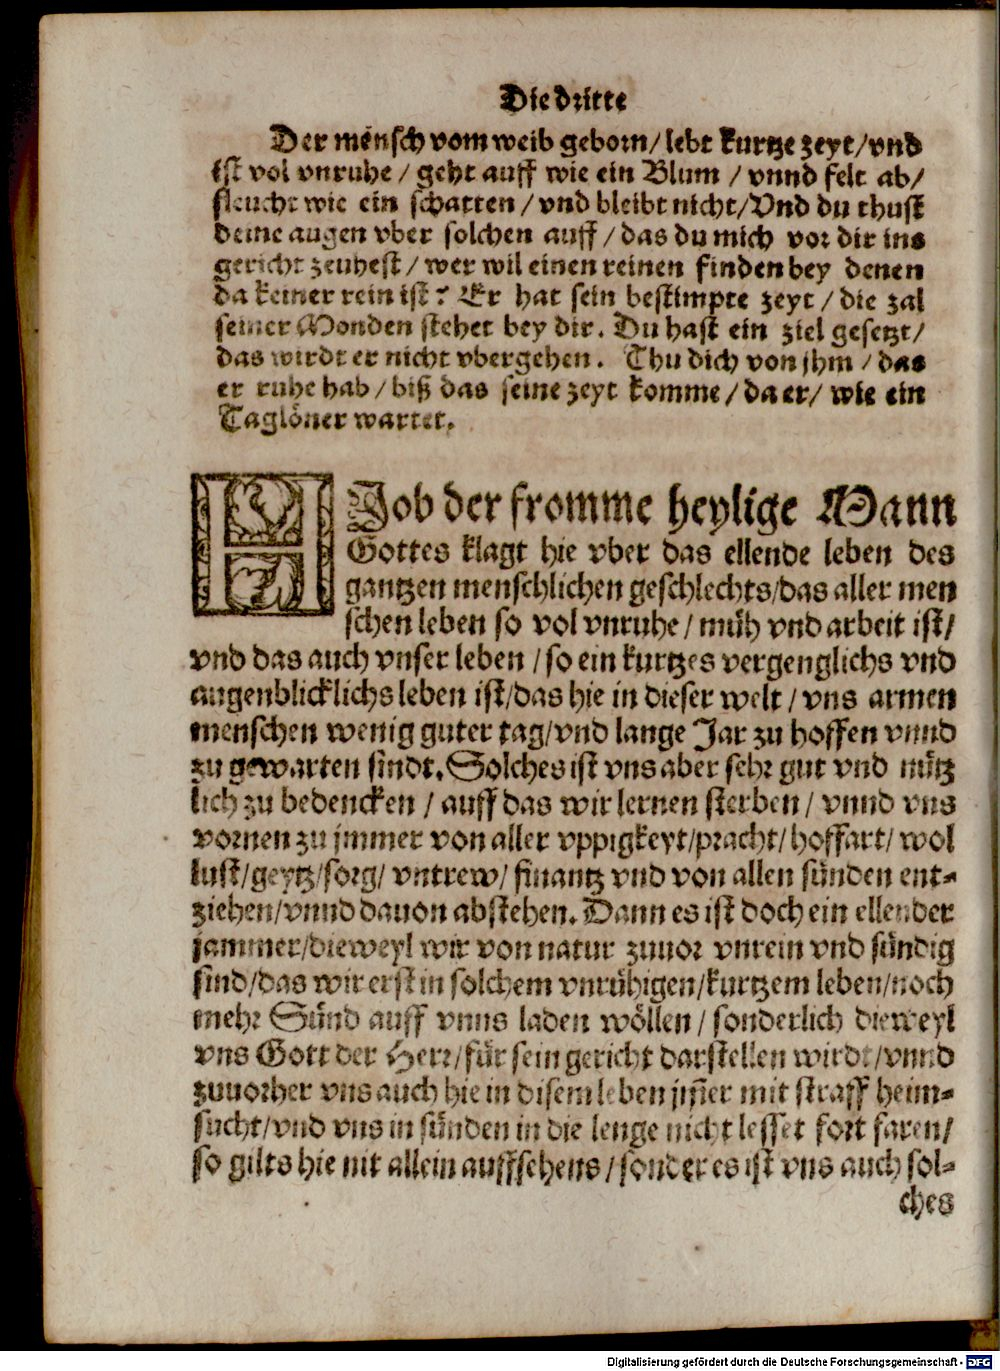 Die dritte
Der mensch vom weib geborn/ lebt kurtze zeyt/ vnd
ist vol vnruhe / geht auff wie ein Blum / vnnd felt ab/
fleucht wie ein schatten / vnd bleibt nicht/ Vnd du thust
deine augen vber solchen auff / das du mich vor dir ins
gericht zeuhest / wer wil einen reinen finden bey denen
da keiner rein ist? Er hat sein bestimpte zeyt / die zal
seiner Monden stehet bey dir. Du hast ein ziel gesetzt/
das wirdt er nicht vbergehen. Thu dich von jhm / das
er ruhe hab / biß das seine zeyt komme / da er/ wie ein
Taglöner wartet.
HJob der fromme heylige Mann
Gottes klagt hie vber das ellende leben des
gantzen menschlichen geschlechts/das aller men
schen leben so vol vnruhe / müh vnd arbeit ist/
vnd das auch vnser leben / so ein kurtzes vergenglichs vnd
augenblicklichs leben ist/das hie in dieser welt / vns armen
menschen wenig guter tag/vnd lange Jar zu hoffen vnnd
zu gewarten sindt. Solches ist vns aber sehr gut vnd nütz
lich zu bedencken / auff das wir lernen sterben / vnnd vns
vornen zu jmmer von aller vppigkeyt/pracht/hoffart/ wol
lust/geytz/sorg/ vntrew/ finantz vnd von allen sünden ent-
ziehen/vnnd dauon abstehen. Dann es ist doch ein ellender
jammer/dieweyl wir von natur zuuor vnrein vnd sündig
sind/das wir erst in solchem vnrühigen/kurtzem leben/noch
mehr Sünd auff vnns laden wöllen / sonderlich dieweyl
vns Gott der Herr/für sein gericht darstellen wirdt/vnnd
zuuorher vns auch hie in disem leben jm̃er mit straff heim-
sucht/vnd vns in sünden in die lenge nicht lesset fort faren/
so gilts hie nit allein auffsehens / sonder es ist vns auch sol-
ches
Digitalisierung gefördert durch die Deutsche Forschungsgemeinschaft - DFG